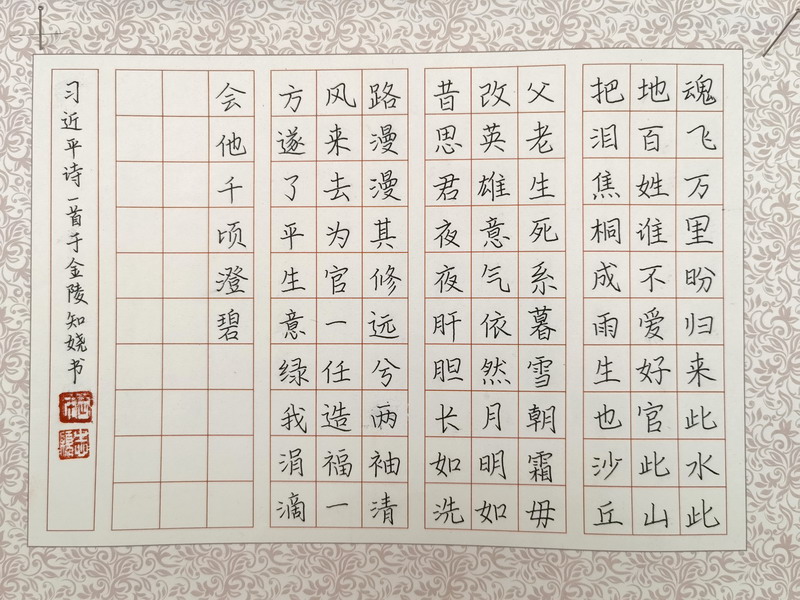 魂飞万里盼归来此水此
地百姓谁不爱好官此山
把泪焦桐成雨生也沙丘
父老生死系暮雪朝霜毋
改英雄意气依然月明如
昔思君夜夜肝胆长如洗
路漫漫其修远兮两袖清
风来去为官一任造福一
方遂了平生意绿我涓滴
会他千顷澄碧
习近平诗一首于金陵知娆书